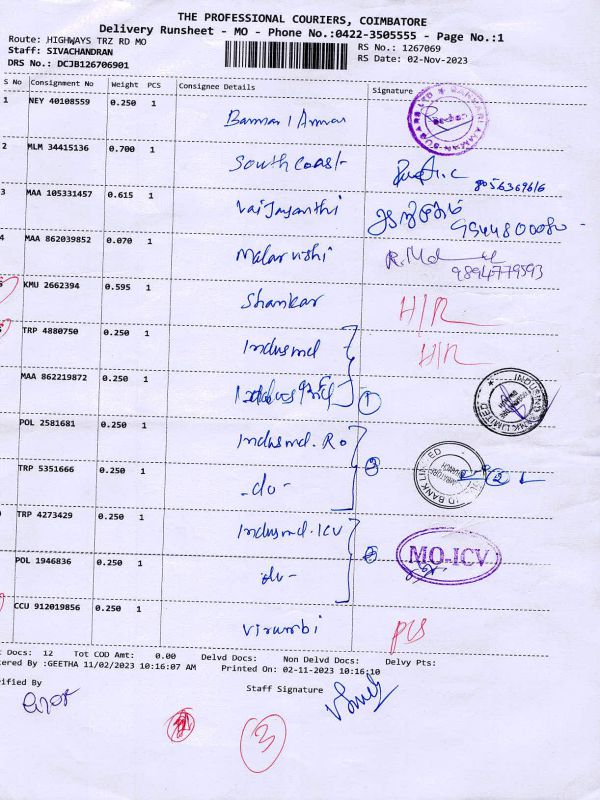 THE PROFESSIONAL COURIERS, COIMBATORE
Delivery Runsheet - MO - Phone No.:0422-3505555 - Page No.:1
Route: HIGHWAYS TRZ RD MO
RS No.: 1267069
Staff: SIVACHANDRAN
RS Date: 02-Nov-2023
DRS No.: DCJB126706901
S No Consignment No Weight PCS Consignee Details Signature
1 NEY 40108559 0.250 1
2 MLM 34415136 0.700 1 South Coast
3 MAA 105331457 0.615 1 Vaijayanthi
4 MAA 862039852 0.070 1 Malar vishi R.
9894779593
KMU 2662394 0.595 1 Shankar H/R
TRP 4880750 0.250 1 Indusmd H/R
MAA 862219872 0.250 1 1
INDUSIND BANK LIMITED
POL 2581681 0.250 1 Indusmd. Ro 2
BANK LIMITED
TRP 5351666 0.250 1 -do-
TRP 4273429 0.250 1 Indusmd. ICV
MO-ICV
POL 1946836 0.250 1 do-
CCU 912019856 0.250 1
Docs: 12 Tot COD Amt: 0.00 Delvd Docs: Non Delvd Docs: Delvy Pts:
tered By :GEETHA 11/02/2023 10:16:07 AM Printed On: 02-11-2023 10:16:10
rified By
Staff Signature
3